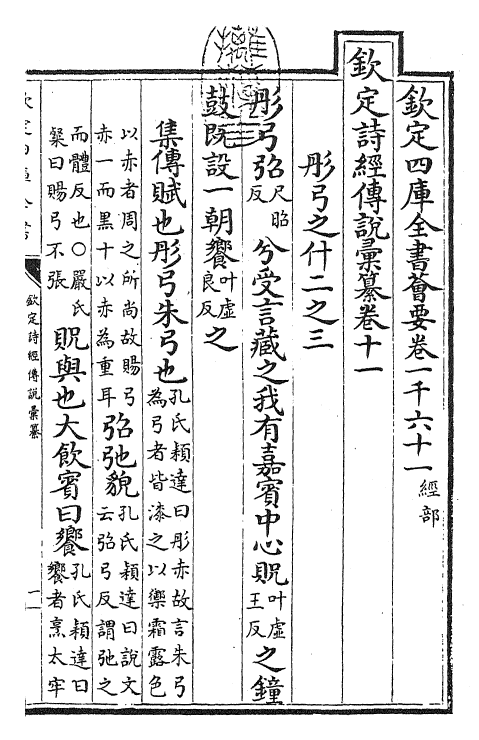 欽定四庫全書薈要卷一千六十一經部
欽定詩經傳說彙纂卷十一
彤弓之什二之三
彤弓弨尺昭反兮受言藏之我有嘉賓中心貺叶虛王反之鐘
鼓既設一朝饗叶虛良反之
集傳賦也彤弓朱弓也孔氏穎達曰彤赤故言朱弓為弓者皆漆之以禦霜露色
以赤者周之所尚故賜弓赤一而黒十以赤為重耳弨弛貌孔氏穎達曰說文云弨弓反謂弛之
而體反也○嚴氏粲曰賜弓不張貺與也大飲賓曰饗孔氏穎達曰饗者烹太牢
欽定詩經傳說彙纂